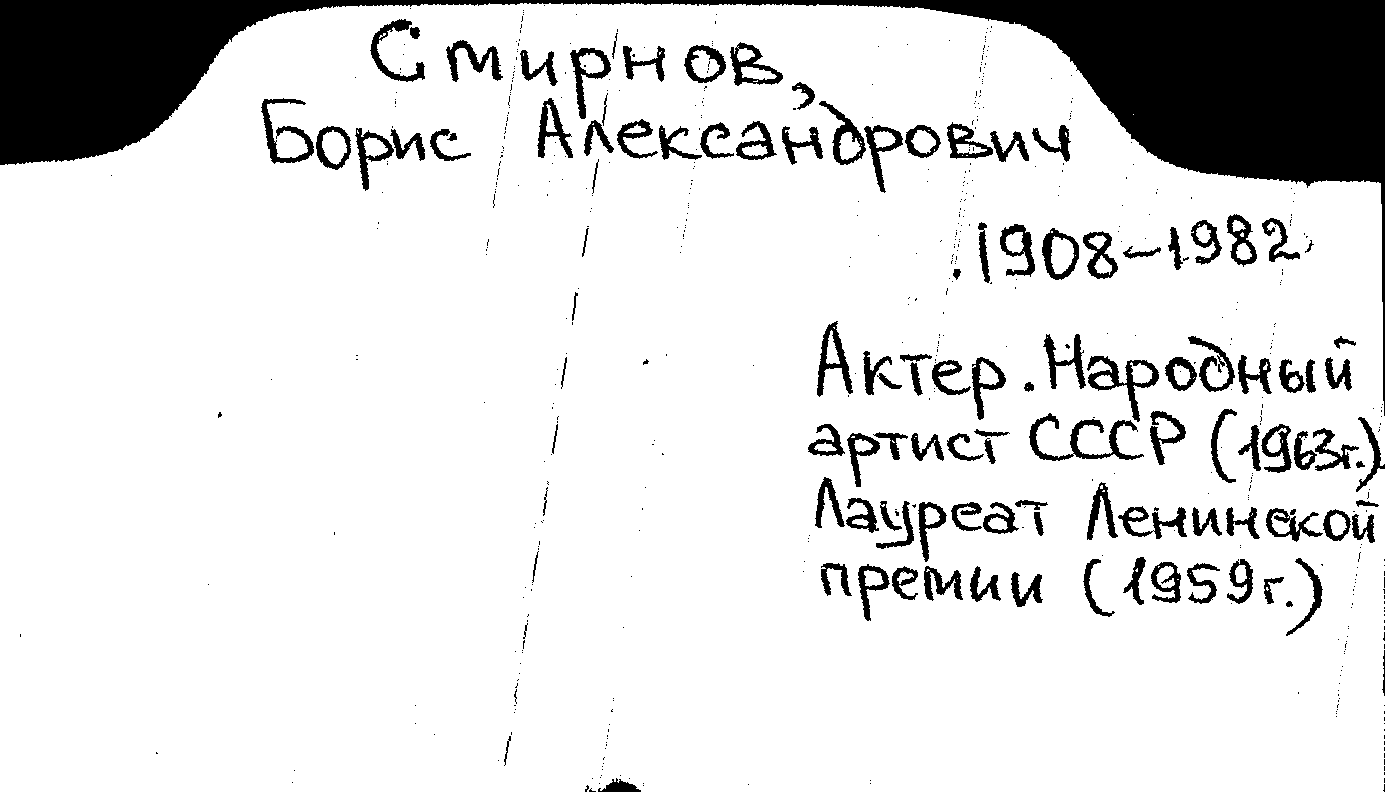 Смирнов,
Борис Александрович
1908-1982
Актер. Народный
артист СССР (1963г.)
Лауреат Ленинской
премии (1959г.)